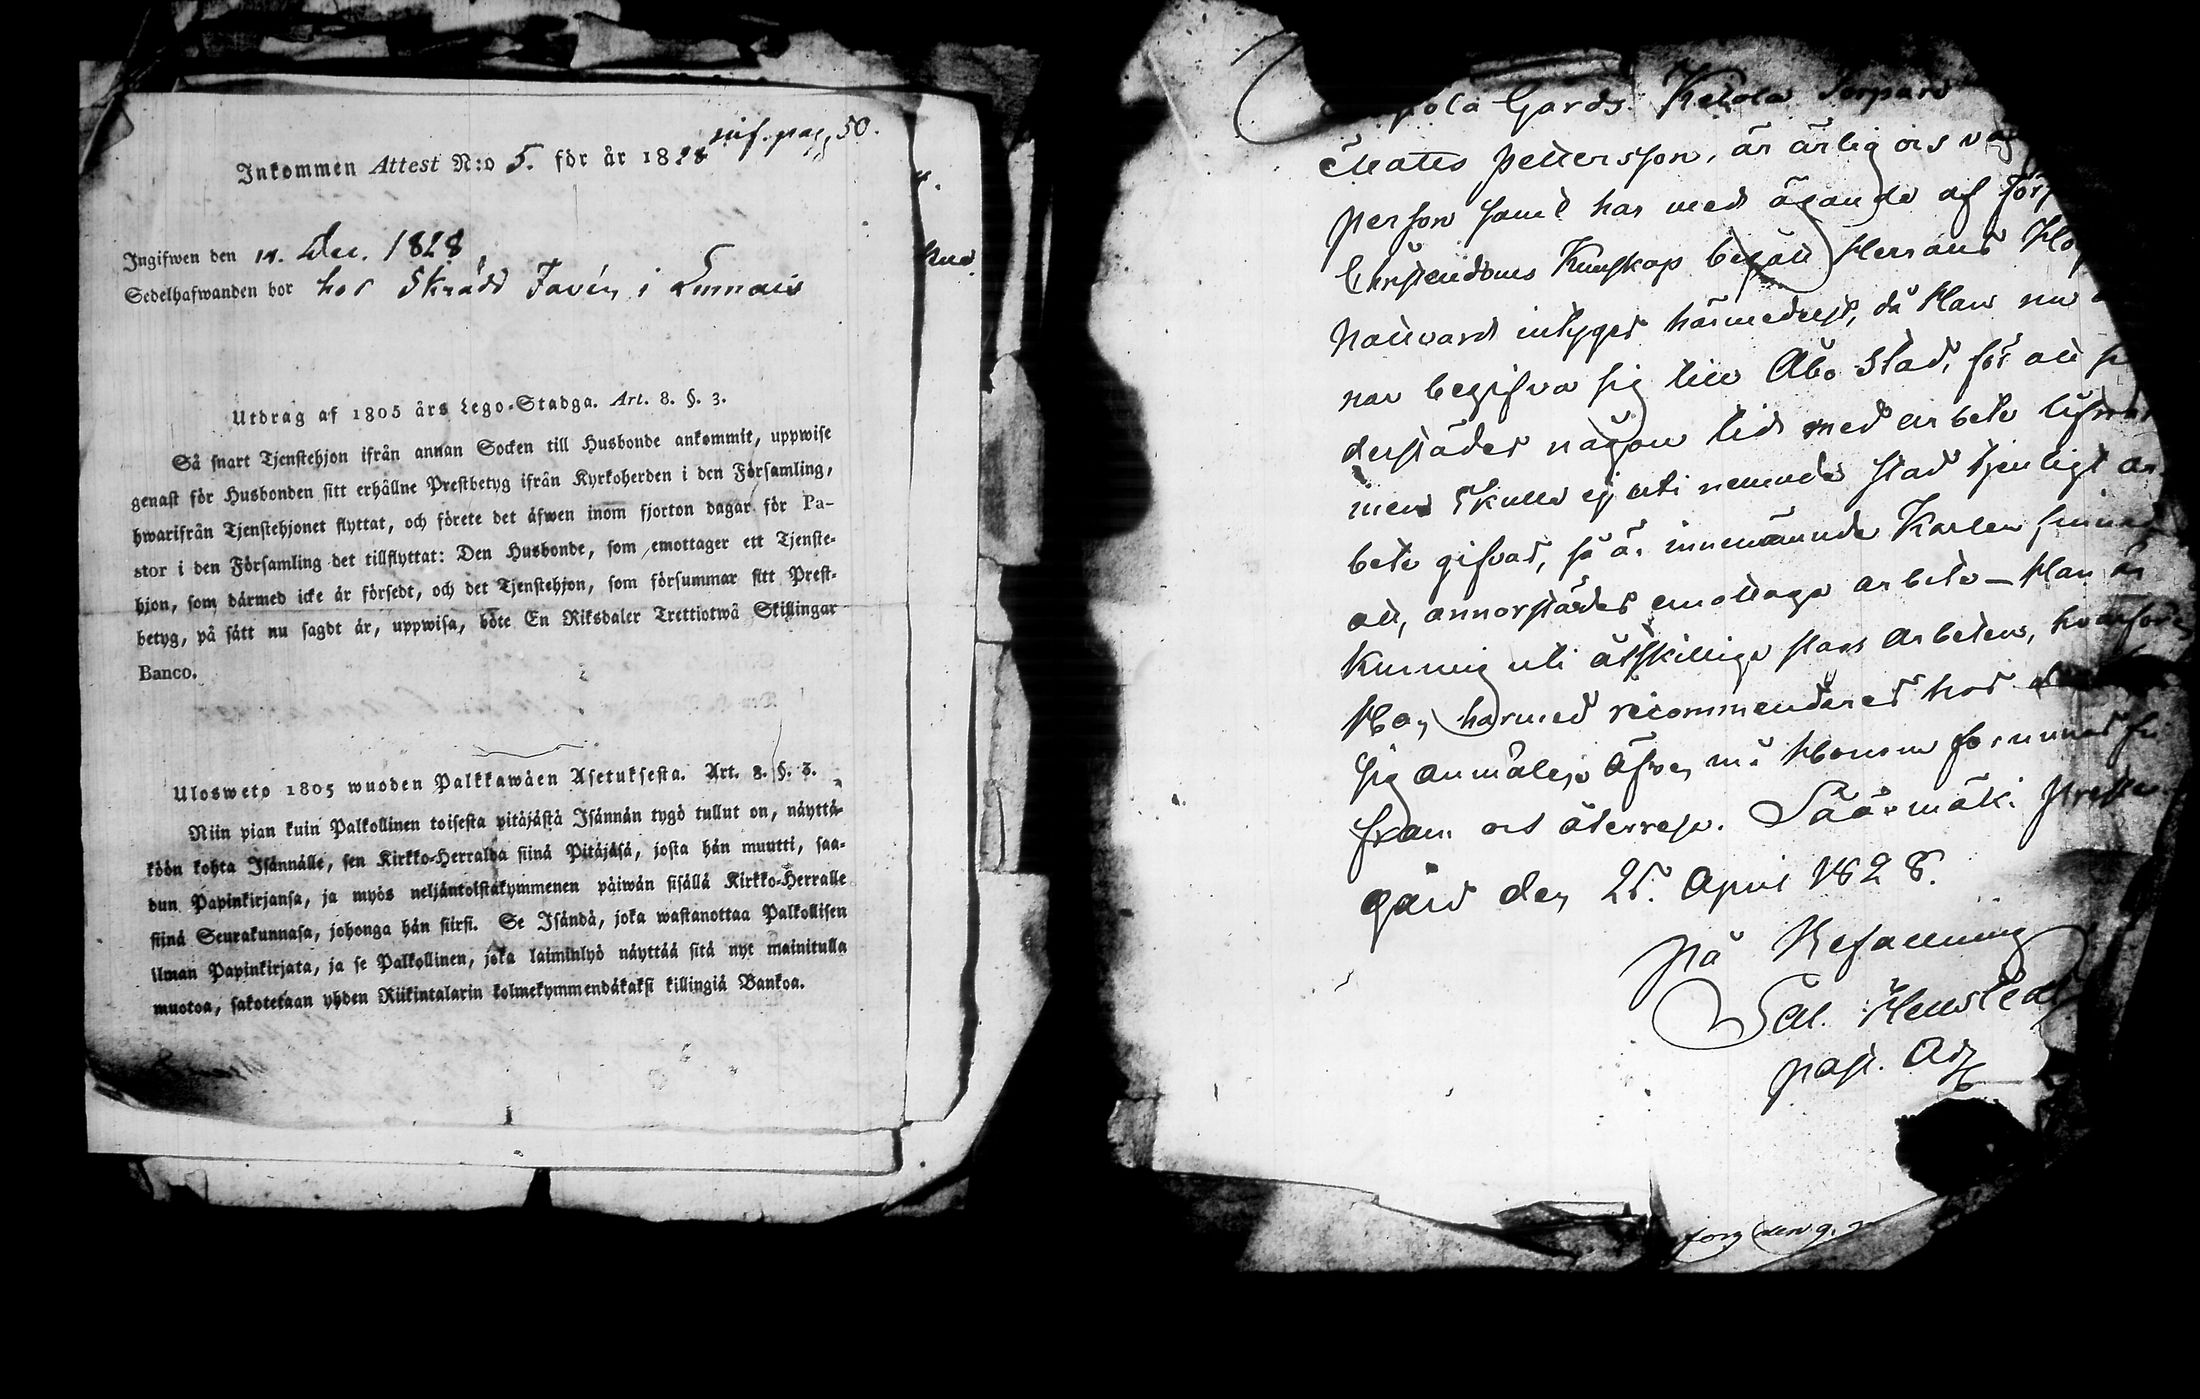 inf. pag. 50.
Inkommen Attest N:o 5. för år 1828
Ingifwen den 14. Dec. 1828
Sedelhafwanden bor hos Skrädd. Favén i
Utdrag af 1805 års Lego-Stadga. Art. 8. §. 3.
Så snart Tjenstehjon ifrån annan Socken till Husbonde ankommit, uppwise
genast för Husbonden sitt erhållne Prestbetyg ifrån Kyrkoherden i den Församling,
hwarifrån Tjenstehjonet flyttat, och förete det äfwen inom fjorton dagar för Pa-
stor i den Församling det tillflyttat: Den Husbonde, som emottager ett Tjenste-
hjon, som därmed icke är försedt, och det Tjenstehjon, som försummar sitt Prest-
betyg, på sätt nu sagdt är, uppwisa, böte En Riksdaler Trettiotwå Skillingar
Banco.
Ulosweto 1805 wuoden Palkkawäen Asetuksesta. Art. 8. §. 3.
Niin pian kuin Palkollinen toisesta pitäjästä Isännän tygö tullut on, näyttä-
köön kohta Isännälle, sen Kirkko-Herralda siinä Pitäjäsä, josta hän muutti, saa-
dun Papinkirjansa, ja myös neljäntoistakymmenen päiwän sisällä Kirkko-Herralle
siinä Seurakunnasa, johonga hän siirsi. Se Isändä, joka wastanottaa Palkollisen
ilman Papinkirjata, ja se Palkollinen, joka laiminlyö näyttää sitä nyt mainitulla
muotoa, sakotetaan yhden Riikintalarin kolmekymmendäkaksi killingiä Bankoa.
pola Gards Ketola Torpars
Matts Pettersson, är ärlig och
person samt har med ägande af
Christendoms Kunskap begått Herrans
Nattvard intyges härmedelst, då Han nu
nar begifva sig till Åbo Stad, för att
derstädes någon tid med arbete
men skulle ej uti nemnde stad tjenligt ar-
bete gifvas, så är innenämnde Karlen sinnad
att, annorstädes emottaga arbete – Han är
kunnig uti åtskillige slags arbeten, hvarföre
Han härmed recommenderes hos
sig anmäler. Äfven må Honom förunnas fri
fram och återresa. Säärmäki Preste-
gård den 25. April 1828.
På Befallning
Sal. Henr
past. Adj.